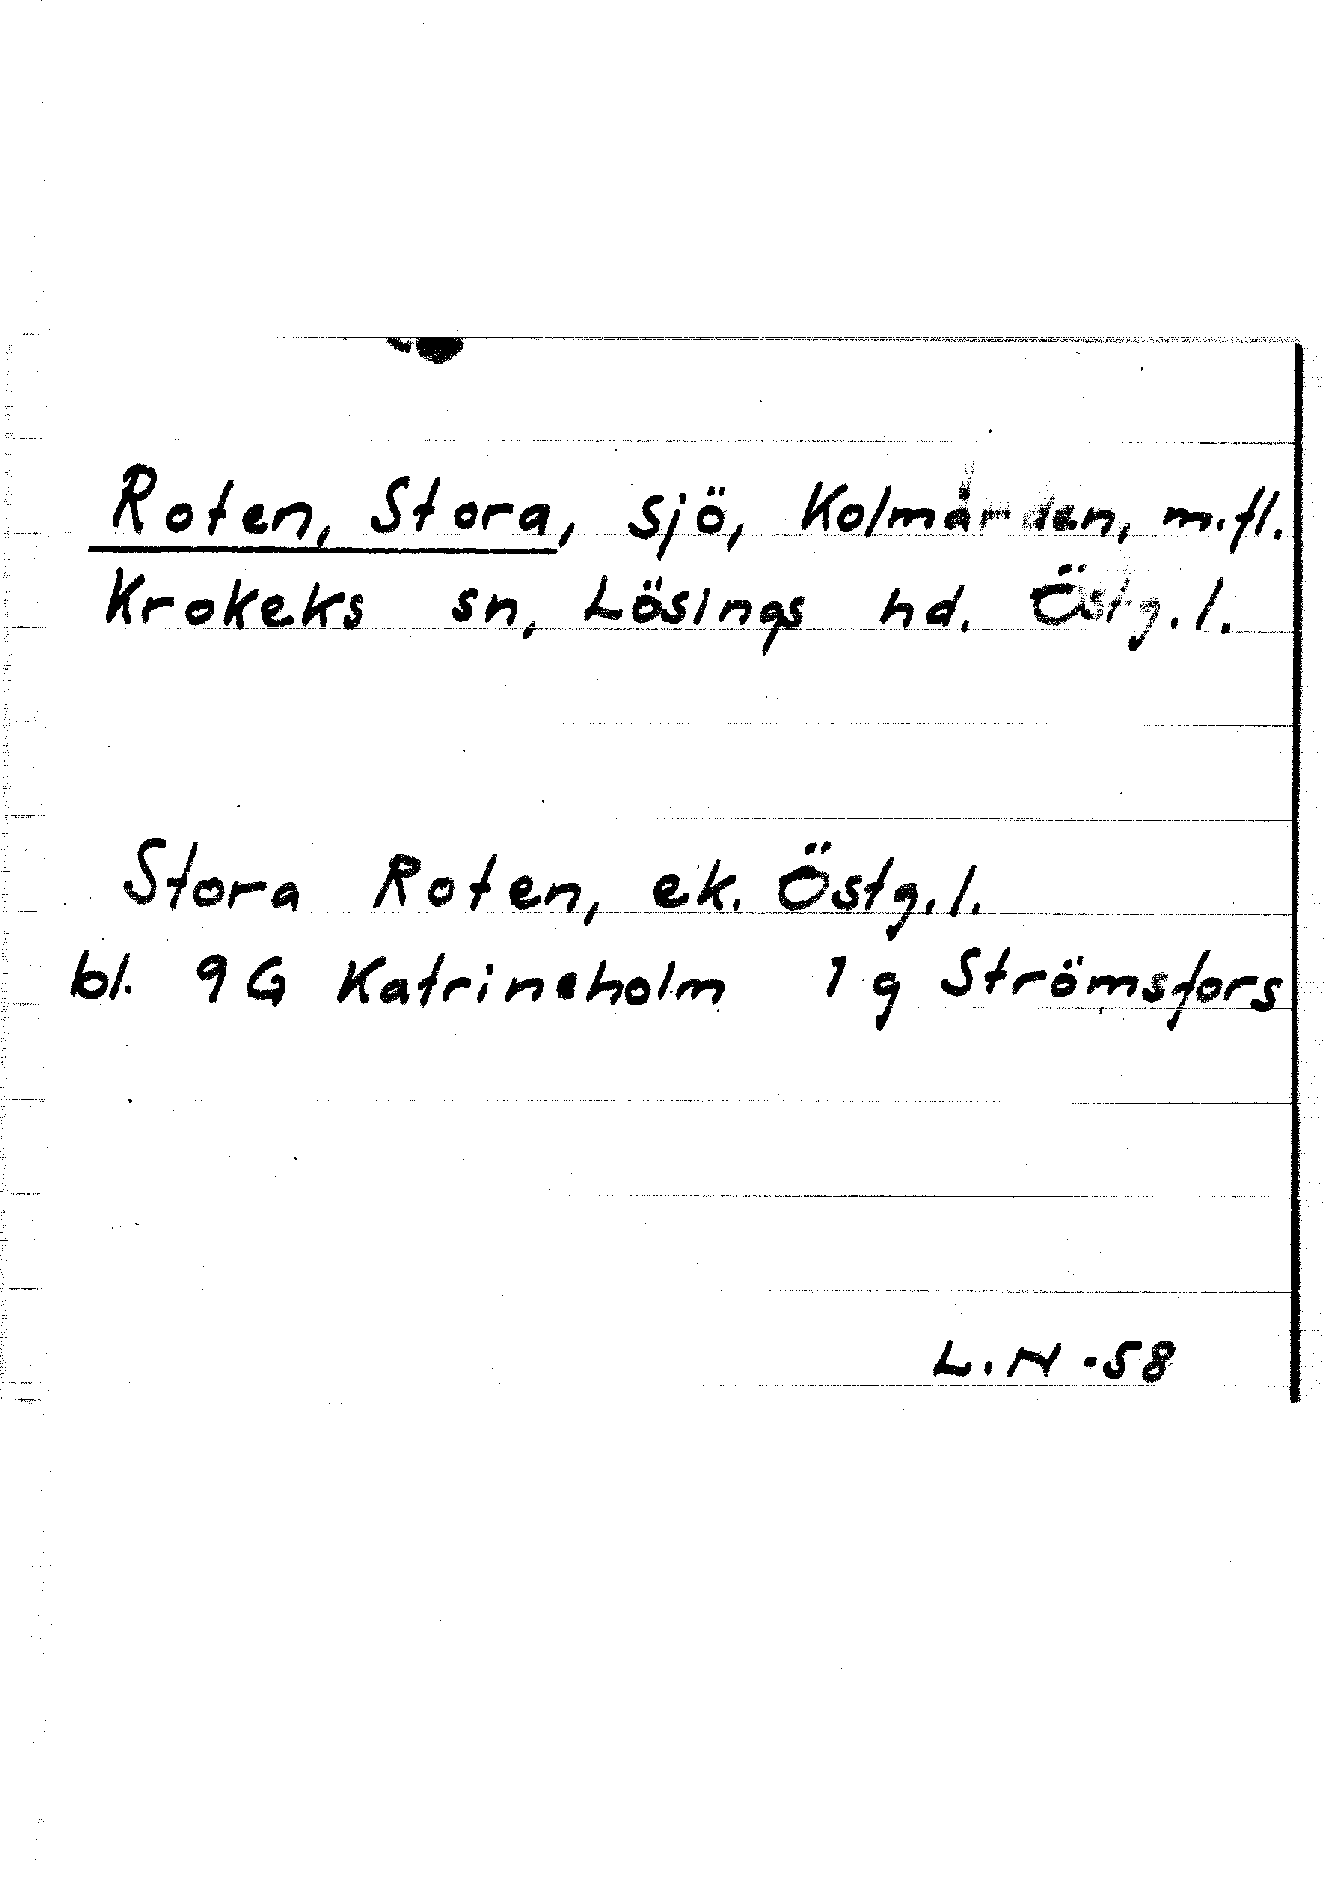 Roten, Stora, sjö, Kolmården, m.fl.
Krokeks sn, Lösings hd. Östg.l.
Stora Roten, ek. Östg.l.
bl. 9G Katrineholm 1g Strömsfors
L.N -58